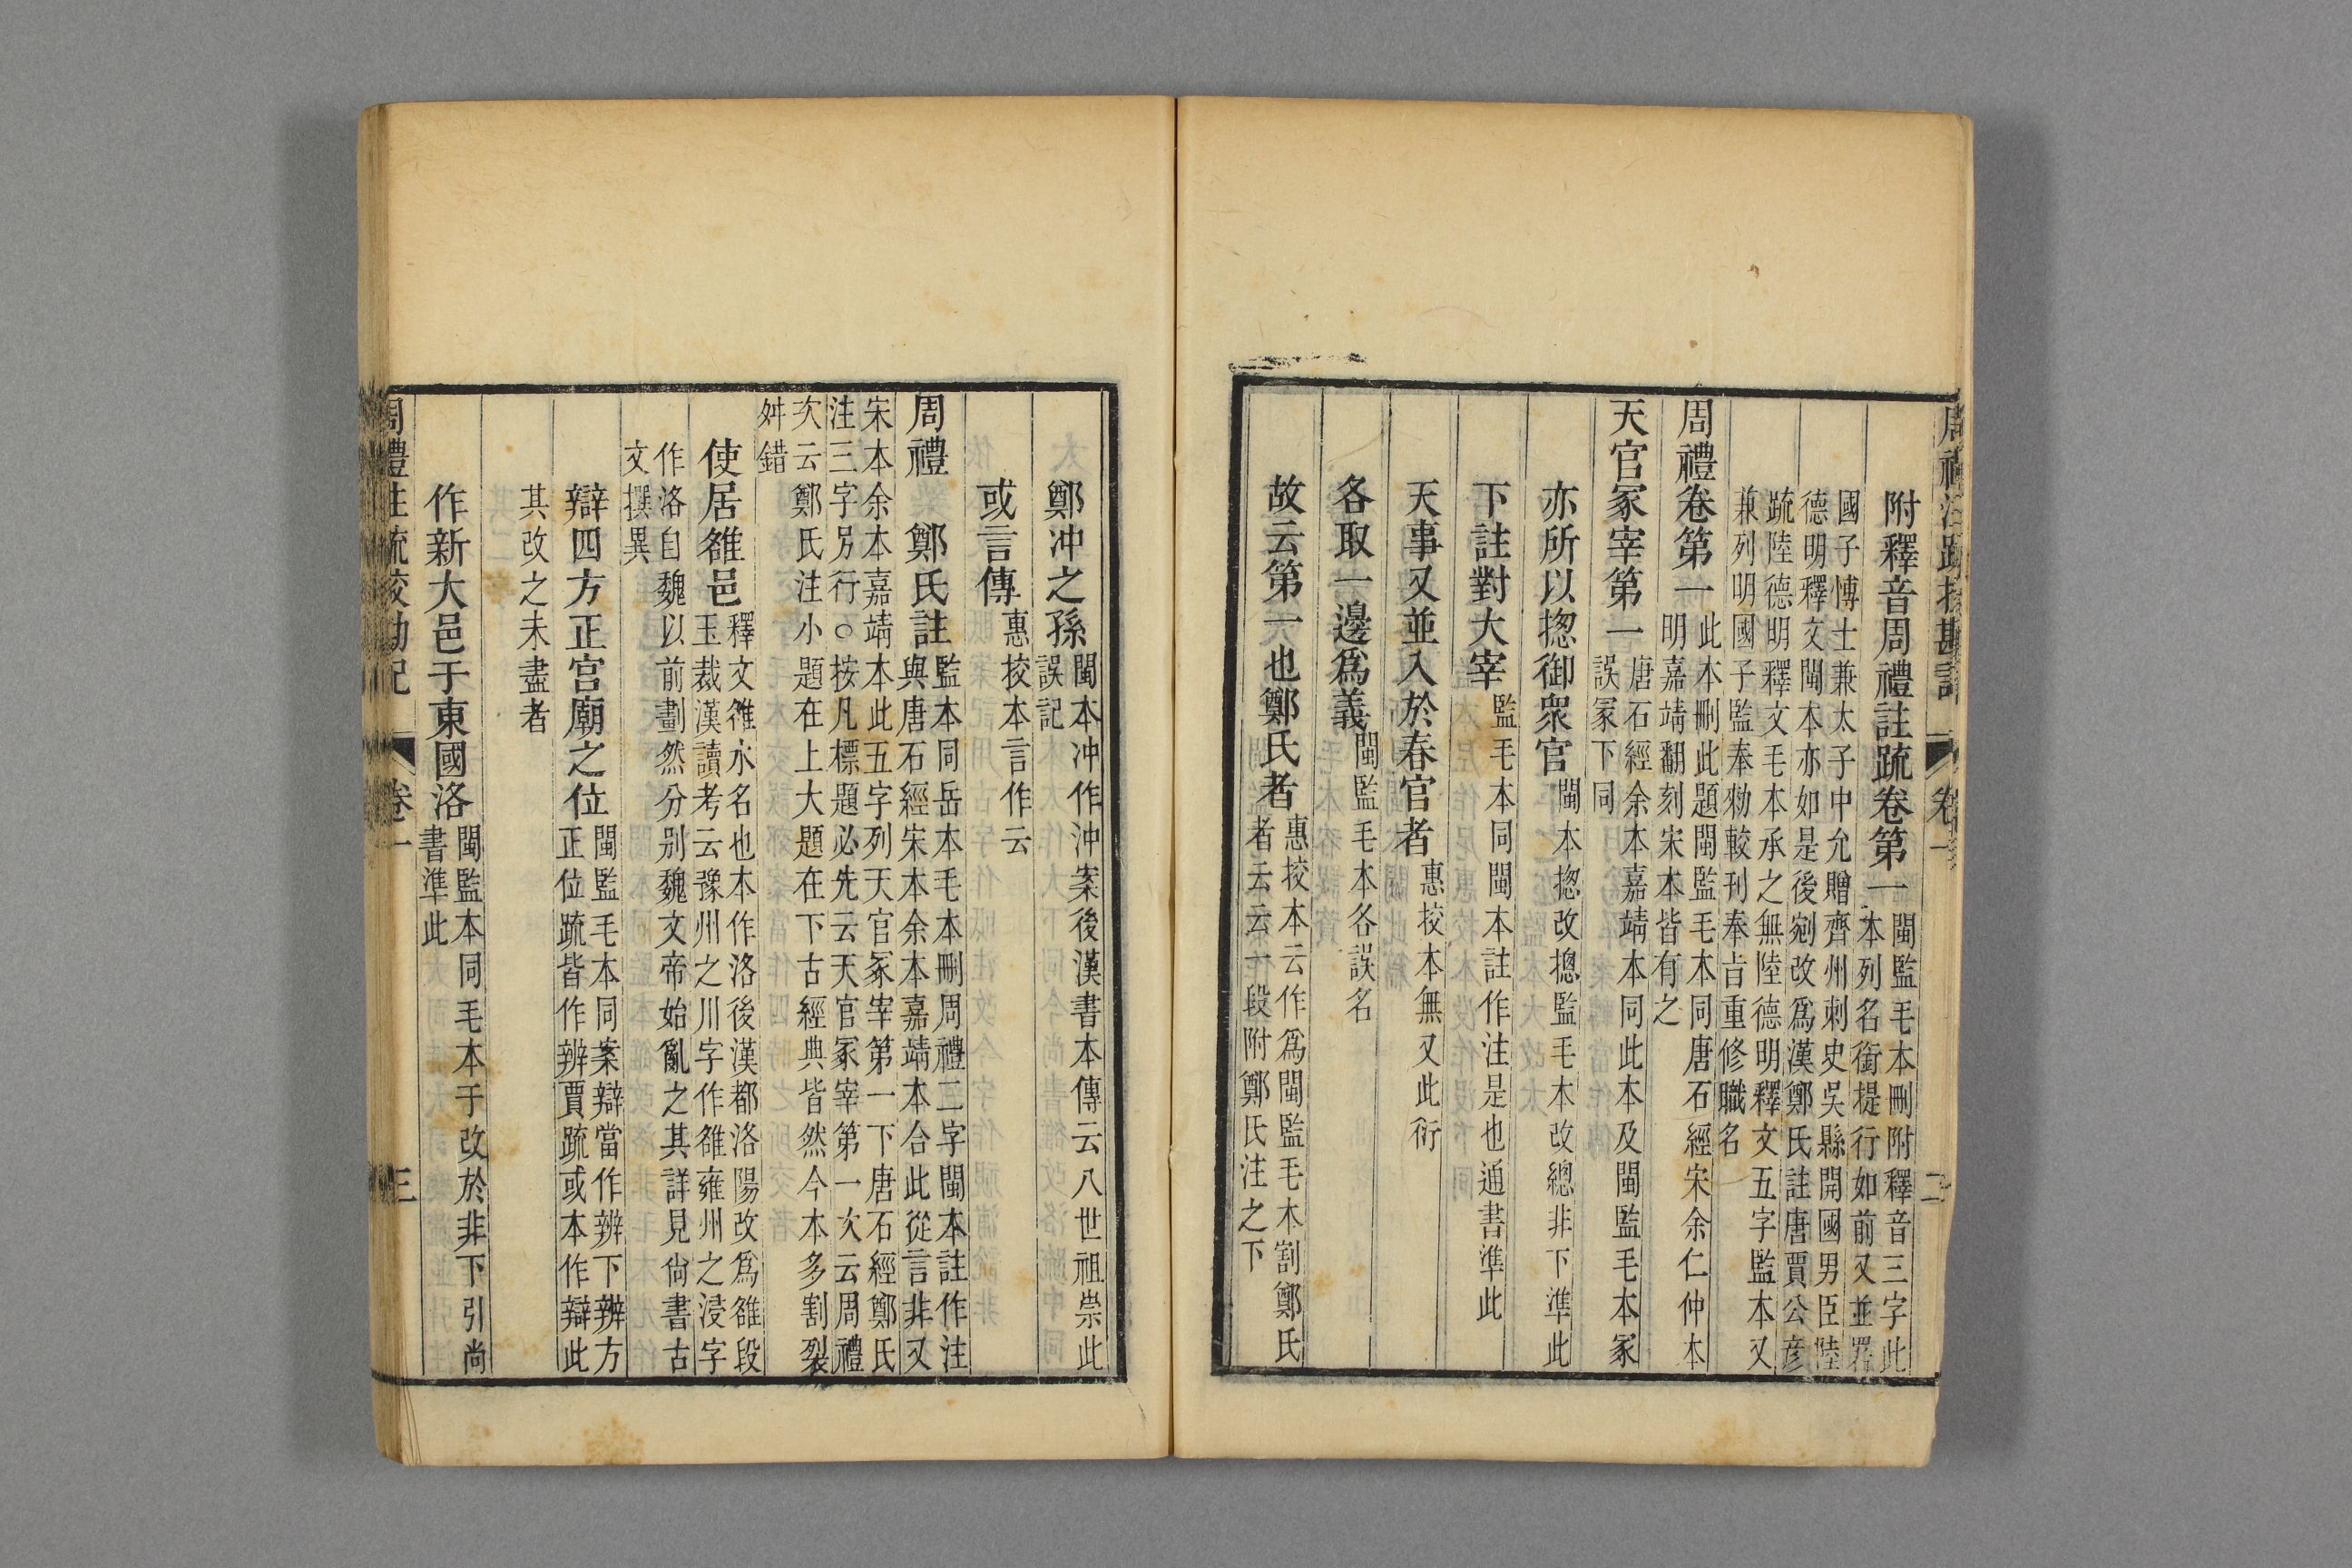 附釋音周禮註疏卷第一
閩監毛本刪附釋音三字此
本列名銜提行如前又並署
國子博士兼太子中允贈齊州刺史吳縣開國男臣陸
德明釋文閩本亦如是後剜改爲漢鄭氏註唐賈公彥
疏陸德明釋文毛本承之無陸德明釋文五字監本又
兼列明國子監奉勅較刊奉旨重修職名
周禮卷第一
此本刪此題閩監毛本同唐石經宋余仁仲本
明嘉靖翻刻宋本皆有之
天官冢宰第一
唐石經余本嘉靖本同此本及閩監毛本冢
誤冡下同
亦所以揔御衆官
閩本揔改摠監毛本改總非下準此
下註對大宰
監毛本同閩本註作注是也通書準此
天事又並入於春官者
惠挍本無又此衍
各取一邊爲義
閩監毛本各誤名
故云第一也鄭氏者
惠挍本云作爲閩監毛本割鄭氏
者云云一段附鄭氏注之下
鄭冲之孫
閩本冲作沖案後漢書本傳云八世祖崇此
誤記
或言傳
惠挍本言作云
周禮　鄭氏註
監本同岳本毛本刪周禮二字閩本註作注
與唐石經宋本余本嘉靖本合此從言非又
宋本余本嘉靖本此五字列天官冢宰第一下唐石經鄭氏
注三字另行○按凡標題必先云天官冢宰第一次云周禮
次云鄭氏注小題在上大題在下古經典皆然今本多割裂
舛錯
使居雒邑
釋文雒水名也本作洛後漢都洛陽改爲雒段
玉裁漢讀考云豫州之川字作雒雍州之浸字
作洛自魏以前劃然分别魏文帝始亂之其詳見尙書古
文撰異
辯四方正宫廟之位
閩監毛本同案辯當作辨下辨方
正位疏皆作辨賈疏或本作辯此
其改之未盡者
作新大邑于東國洛
閩監本同毛本于改於非下引尙
書準此
周禮注疏挍勘記
卷一
三